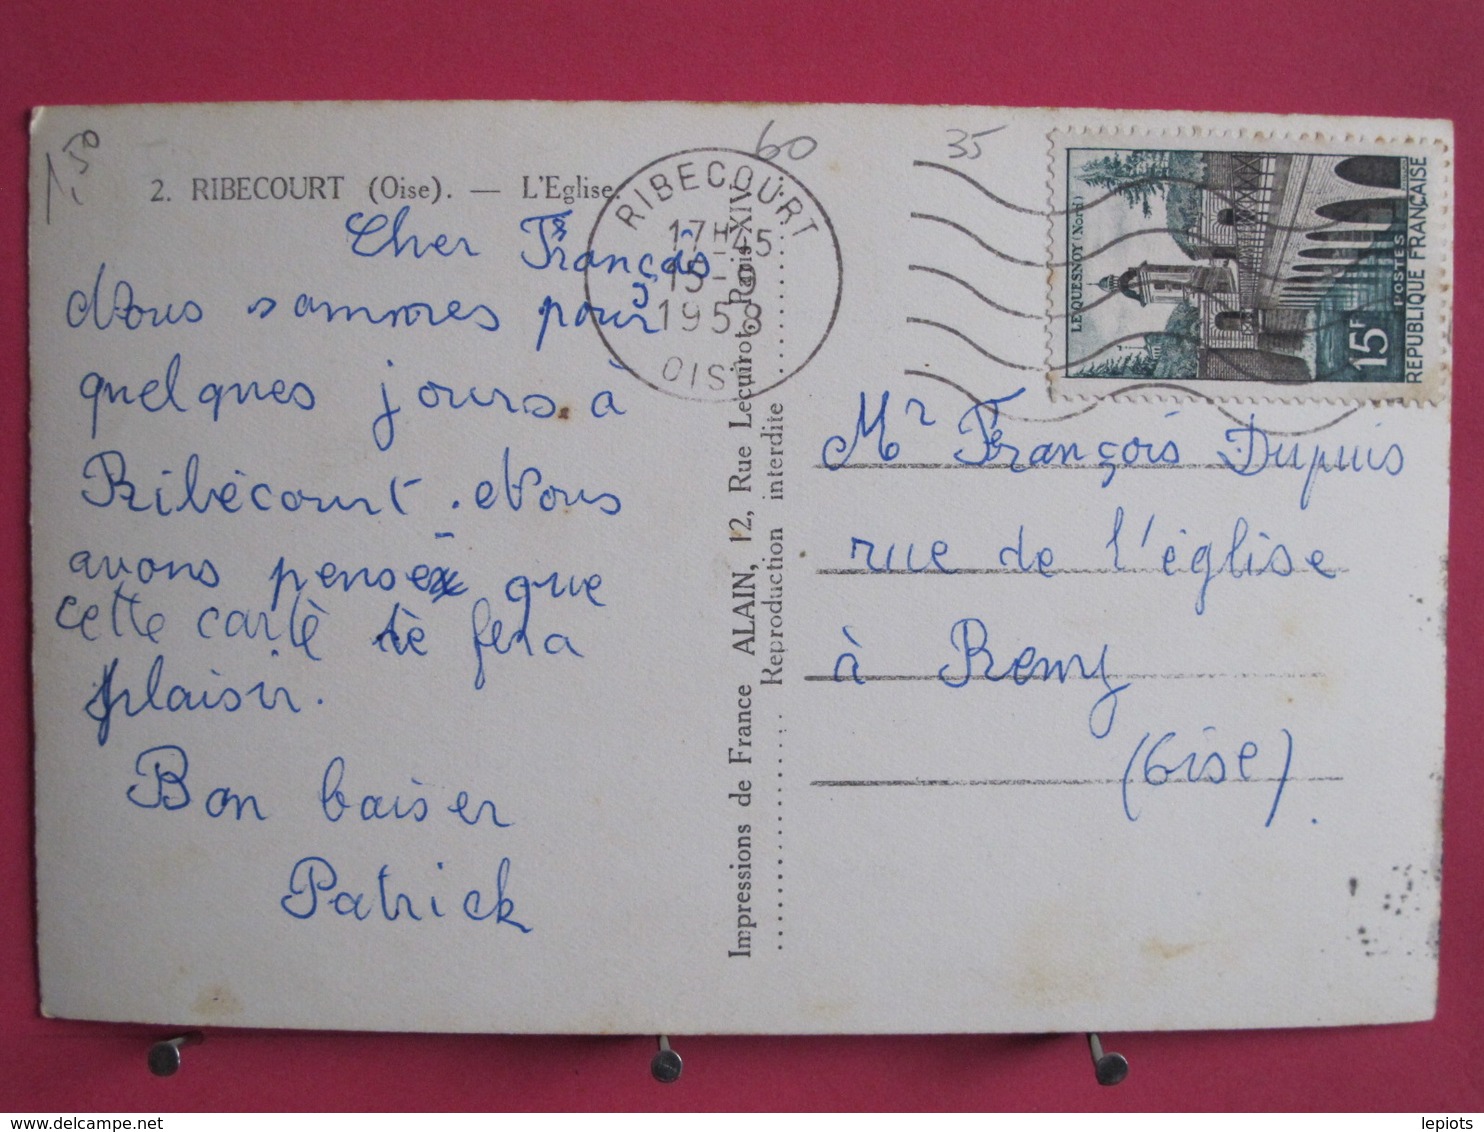 1,50
60
35
2. RIBECOURT (Oise). — L'Eglise.
Cher François
Nous sommes pour
quelques jours à
Ribécourt. Nous
avons pensé que
cette carte te fera
plaisir.
Bon baiser
Patrick
RIBECOURT
17H45
15-
1958
OISE
Impressions de France ALAIN, 12, Rue Lecuirot, Paris-XIV
Reproduction interdite
LE QUESNOY (Nord)
POSTES
15F
REPUBLIQUE FRANÇAISE
Mr François Dupuis
rue de l'église
à Remy
(Oise).
lepiots